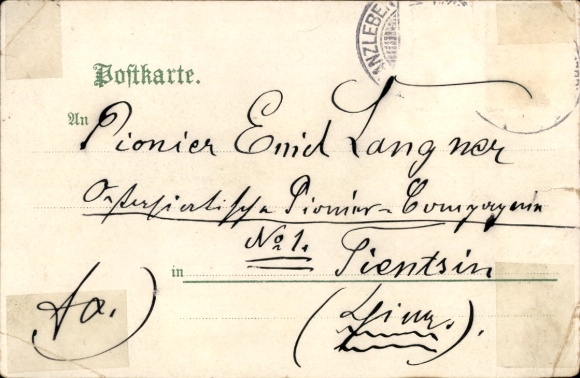 ANZLEBEN
Postkarte.
An Pionier Emil Langner
Ostasiatische Pionier-Compagnie
No 1.
in Tientsin
(China.).